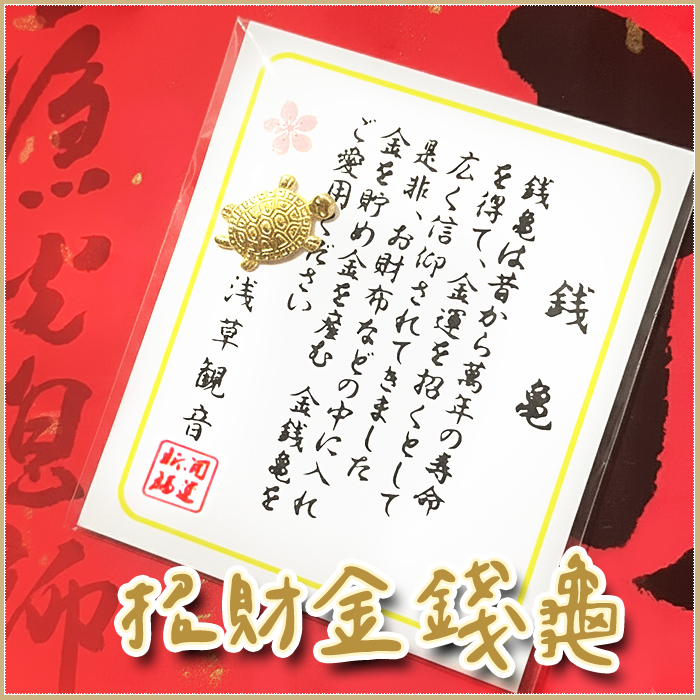 銭亀
銭亀は昔から萬年の寿命
を得て、金運を招くとして
広く信仰されてきました
是非、お財布などの中に入れ
金を貯め金を産む 金銭亀を
ご愛用ください
浅草観音
招財金錢龜